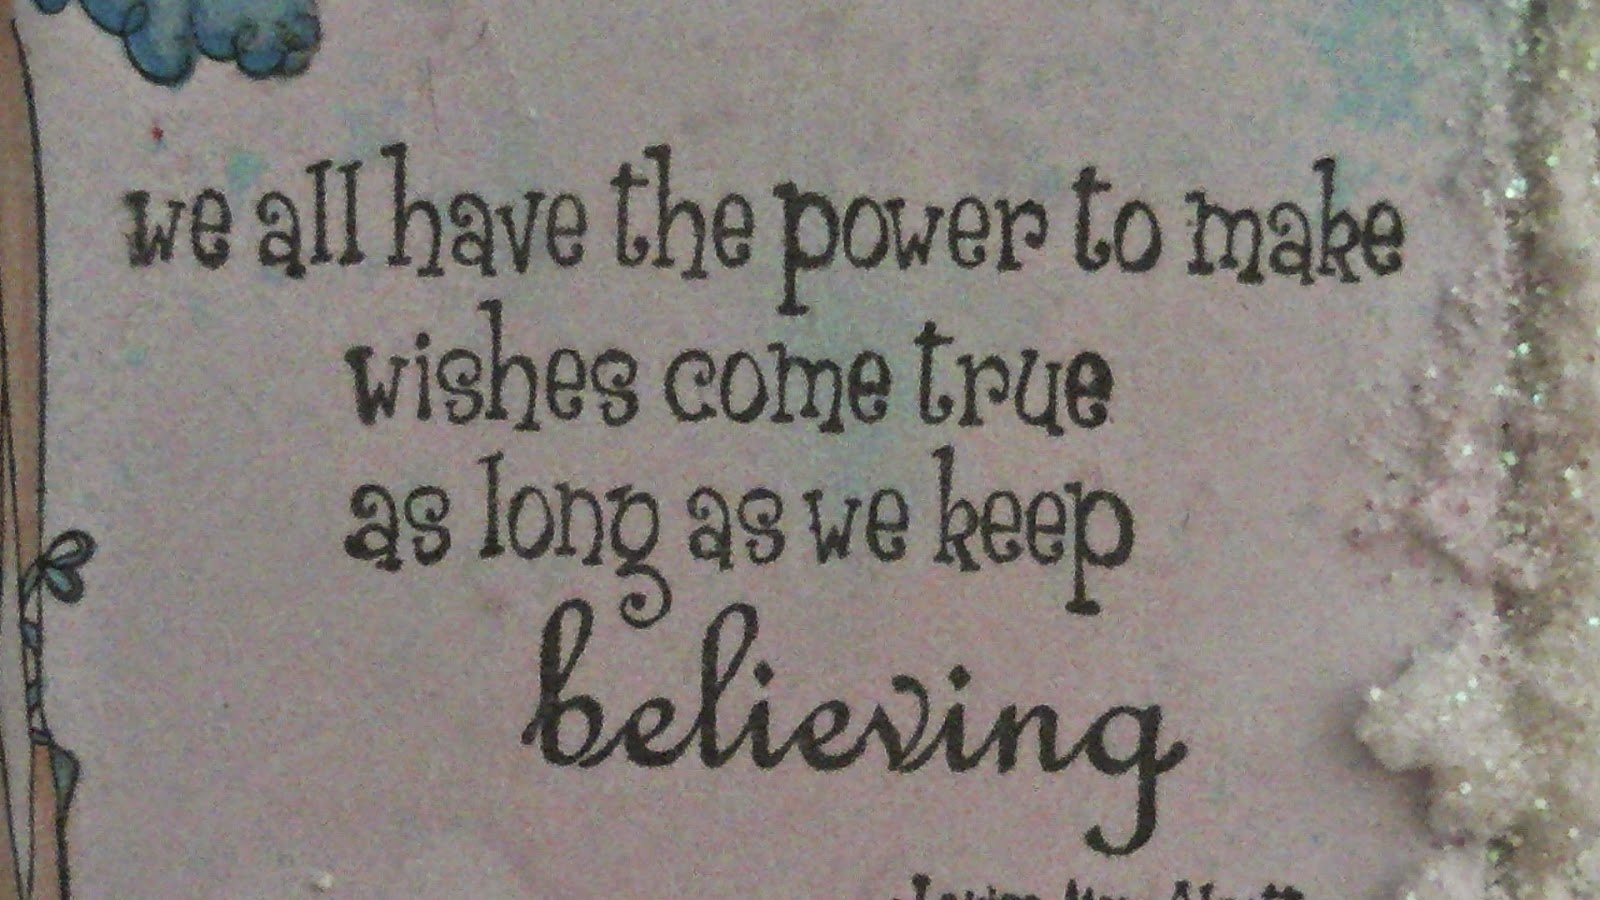 we all have the power to make
wishes come true
as long as we keep
believing